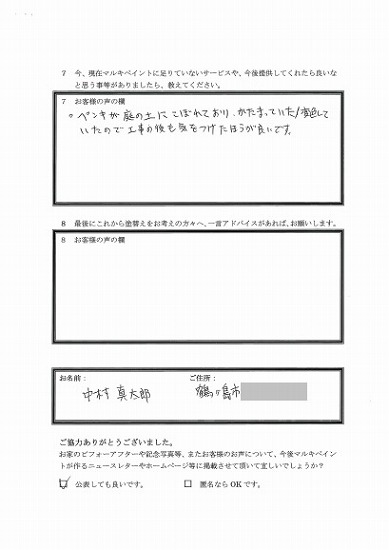 7 今、現在マルキペイントに足りていないサービスや、今後提供してくれたら良いな
と思う事等がありましたら、教えてください。
7 お客様の声の欄
○ペンキが庭の土にこぼれており、かたまっていた/変色して
いたので工事の後も気をつけたほうが良いです。
8 最後にこれから塗替えをお考えの方々へ、一言アドバイスがあれば、お願いします。
8 お客様の声の欄
お名前： ご住所：
中村 真太郎 鶴ヶ島市
ご協力ありがとうございました。
お家のビフォーアフターや記念写真等、またお客様のお声について、今後マルキペイン
トが作るニュースレターやホームページ等に掲載させて頂いて宜しいでしょうか？
☑ 公表しても良いです。 □ 匿名ならOKです。